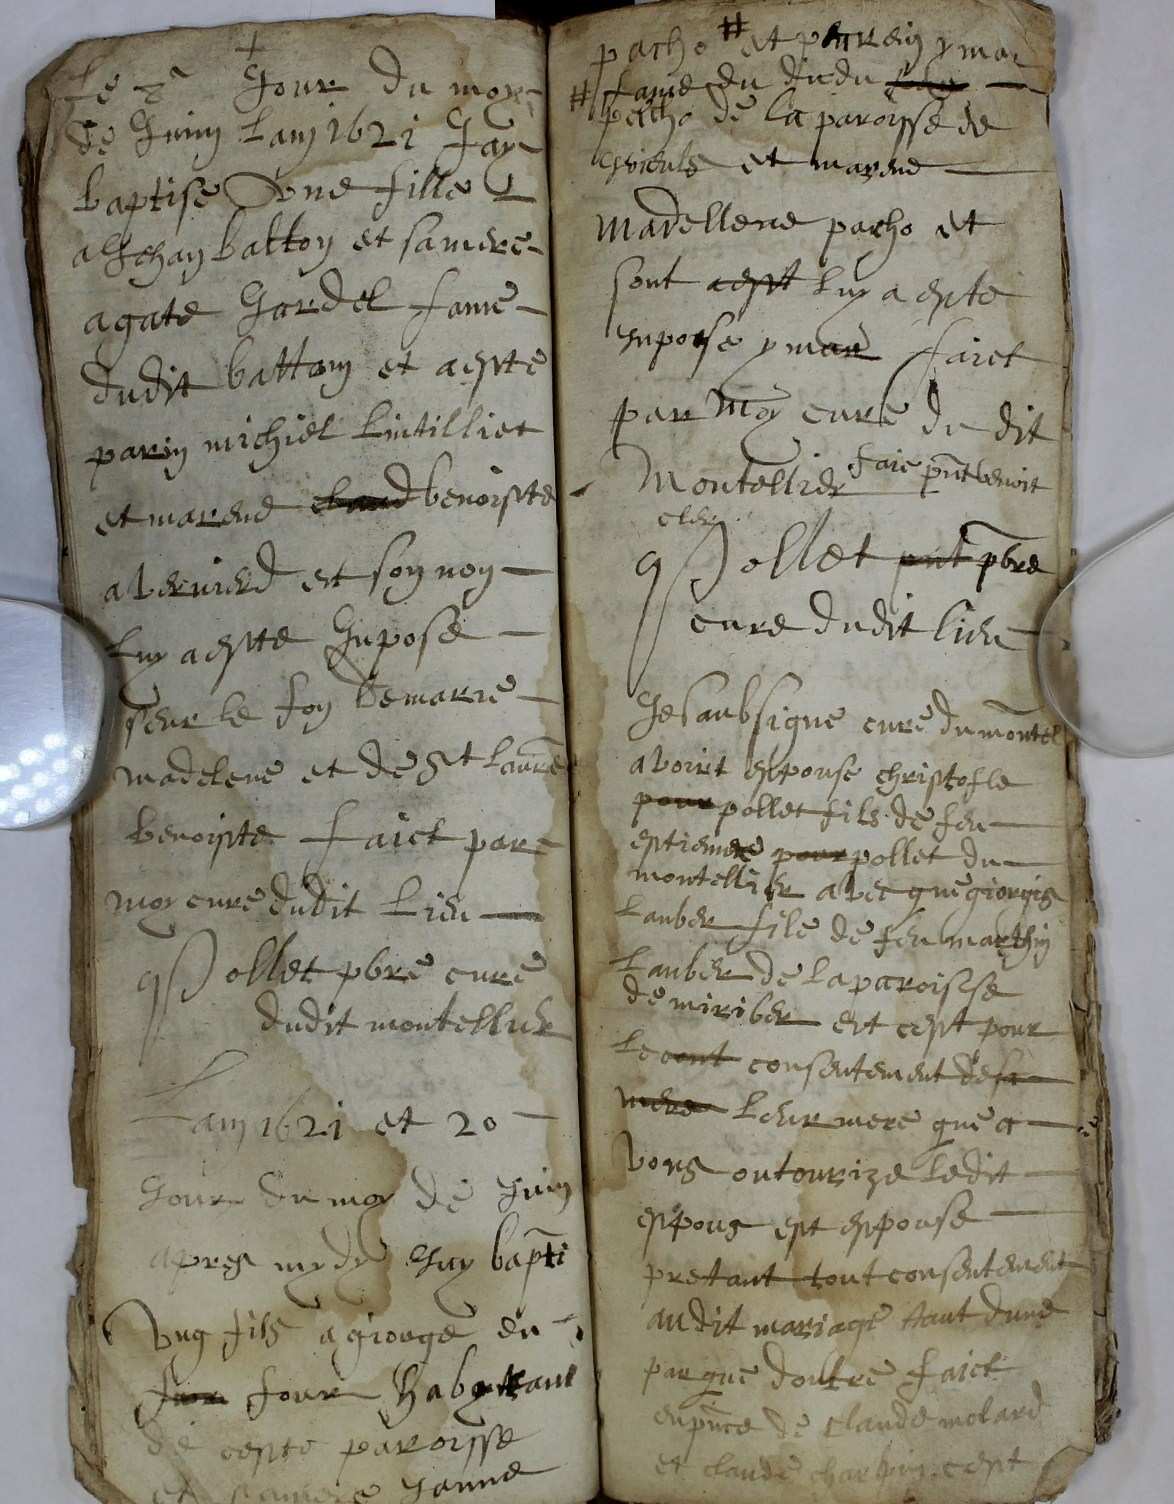 Le 2 Jour du moys
de Juin Lany 1621 Jay
baptise une fille
a Jehan batton et sa mere
agate Jordel fame
dudit battony et a estte
pariny michiel Lintillier
et marene benoiste
a et son nony
Luy a estte Inpose
seur le fon de marie
madelene et de St Laure
benoiste faict par
moy cure dudit Lieu
Pollet pbre cure
dudit montellier
Lany 1621 et 20
Jour du moy de Juin
apres mydy Jay bapti
Ung fils a gionge du
four habytant
de ceste paroisse
et sa mere Janne
pacho # et parein ymar
# fame du dudit
pacho de la paroisse de
et marene
madellene pacho et
sont Luy a este
Inpose ymar faict
par Moy cure du dit
Montellier faic pnt benoit
cler
Pollet pbre
cure dudit lieu
Je saubsigne cure du montel
avoirt espouse christofle
pollet fils de feu
estienne pollet du
montellier avec que giorgis
Lauber file de feu marthin
Lauber de la paroisse
de miriber est cest pour
Le consentement de
Leur mere que a
vous outourize ledit
espous est espouse
pretant tout consentement
audit mariage tant dune
par que doutre faict
en pnce de claude molard
et claude charbin cest